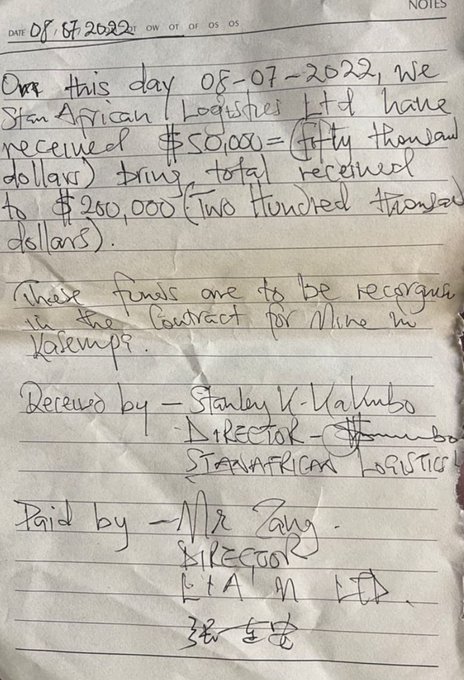 NOTES
DATE 08.07.2022 OW OT OF OS OS
On this day 08-07-2022, we
Stan African Logistics Ltd have
received $50,000= (fifty thousand
dollars) bring total received
to $200,000 (Two Hundred thousand
dollars).
These funds are to be
in the Contract for Mine in
Kasempa.
Received by - Stanley K. Kakubo
DIRECTOR -
STANAFRICAN LOGISTICS
Paid by - Mr Zang.
DIRECTOR
LTD.